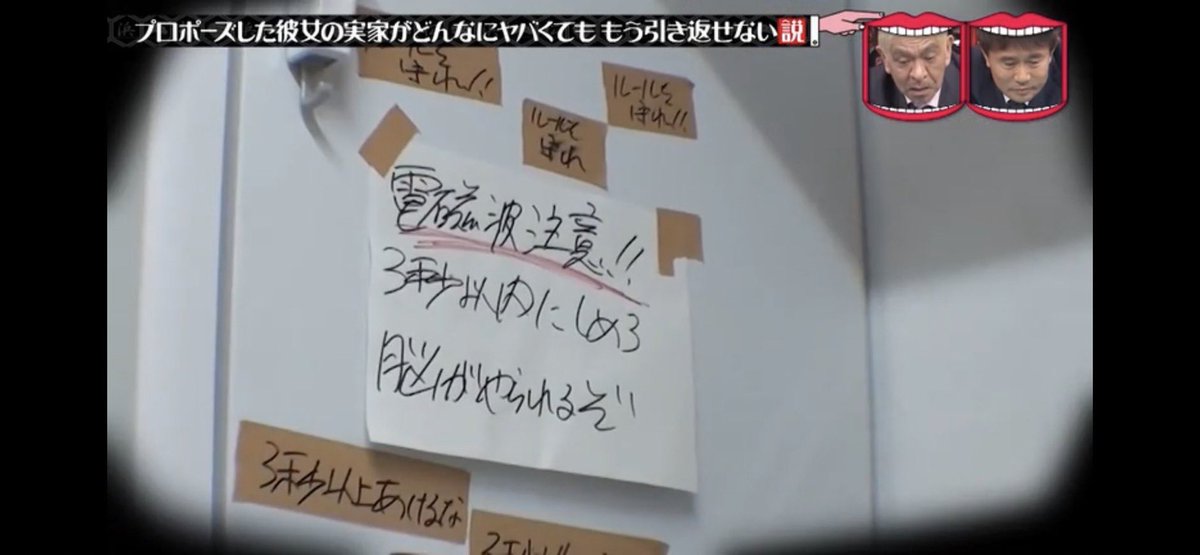 プロポーズした彼女の実家がどんなにヤバくても もう引き返せない説!
ルールを
まもれ!!
ルールを
まもれ
電磁波注意!!
3秒以内にしめろ
脳がやられるぞ
3秒以上あけるな